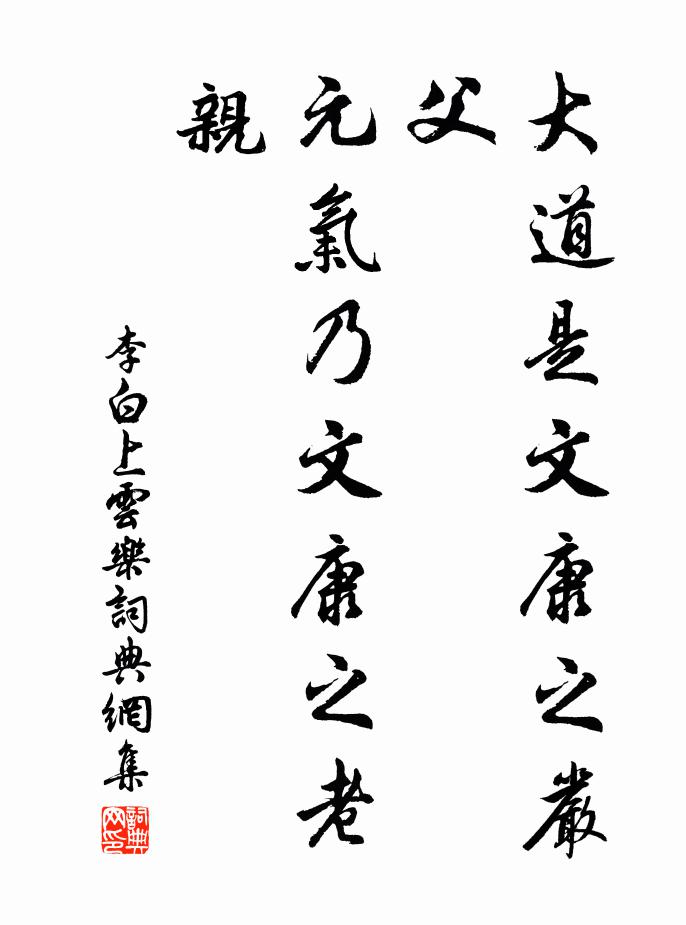 大道是文康之嚴
父
元氣乃文康之老
親
李白上雲樂詞典網集
詞典网印